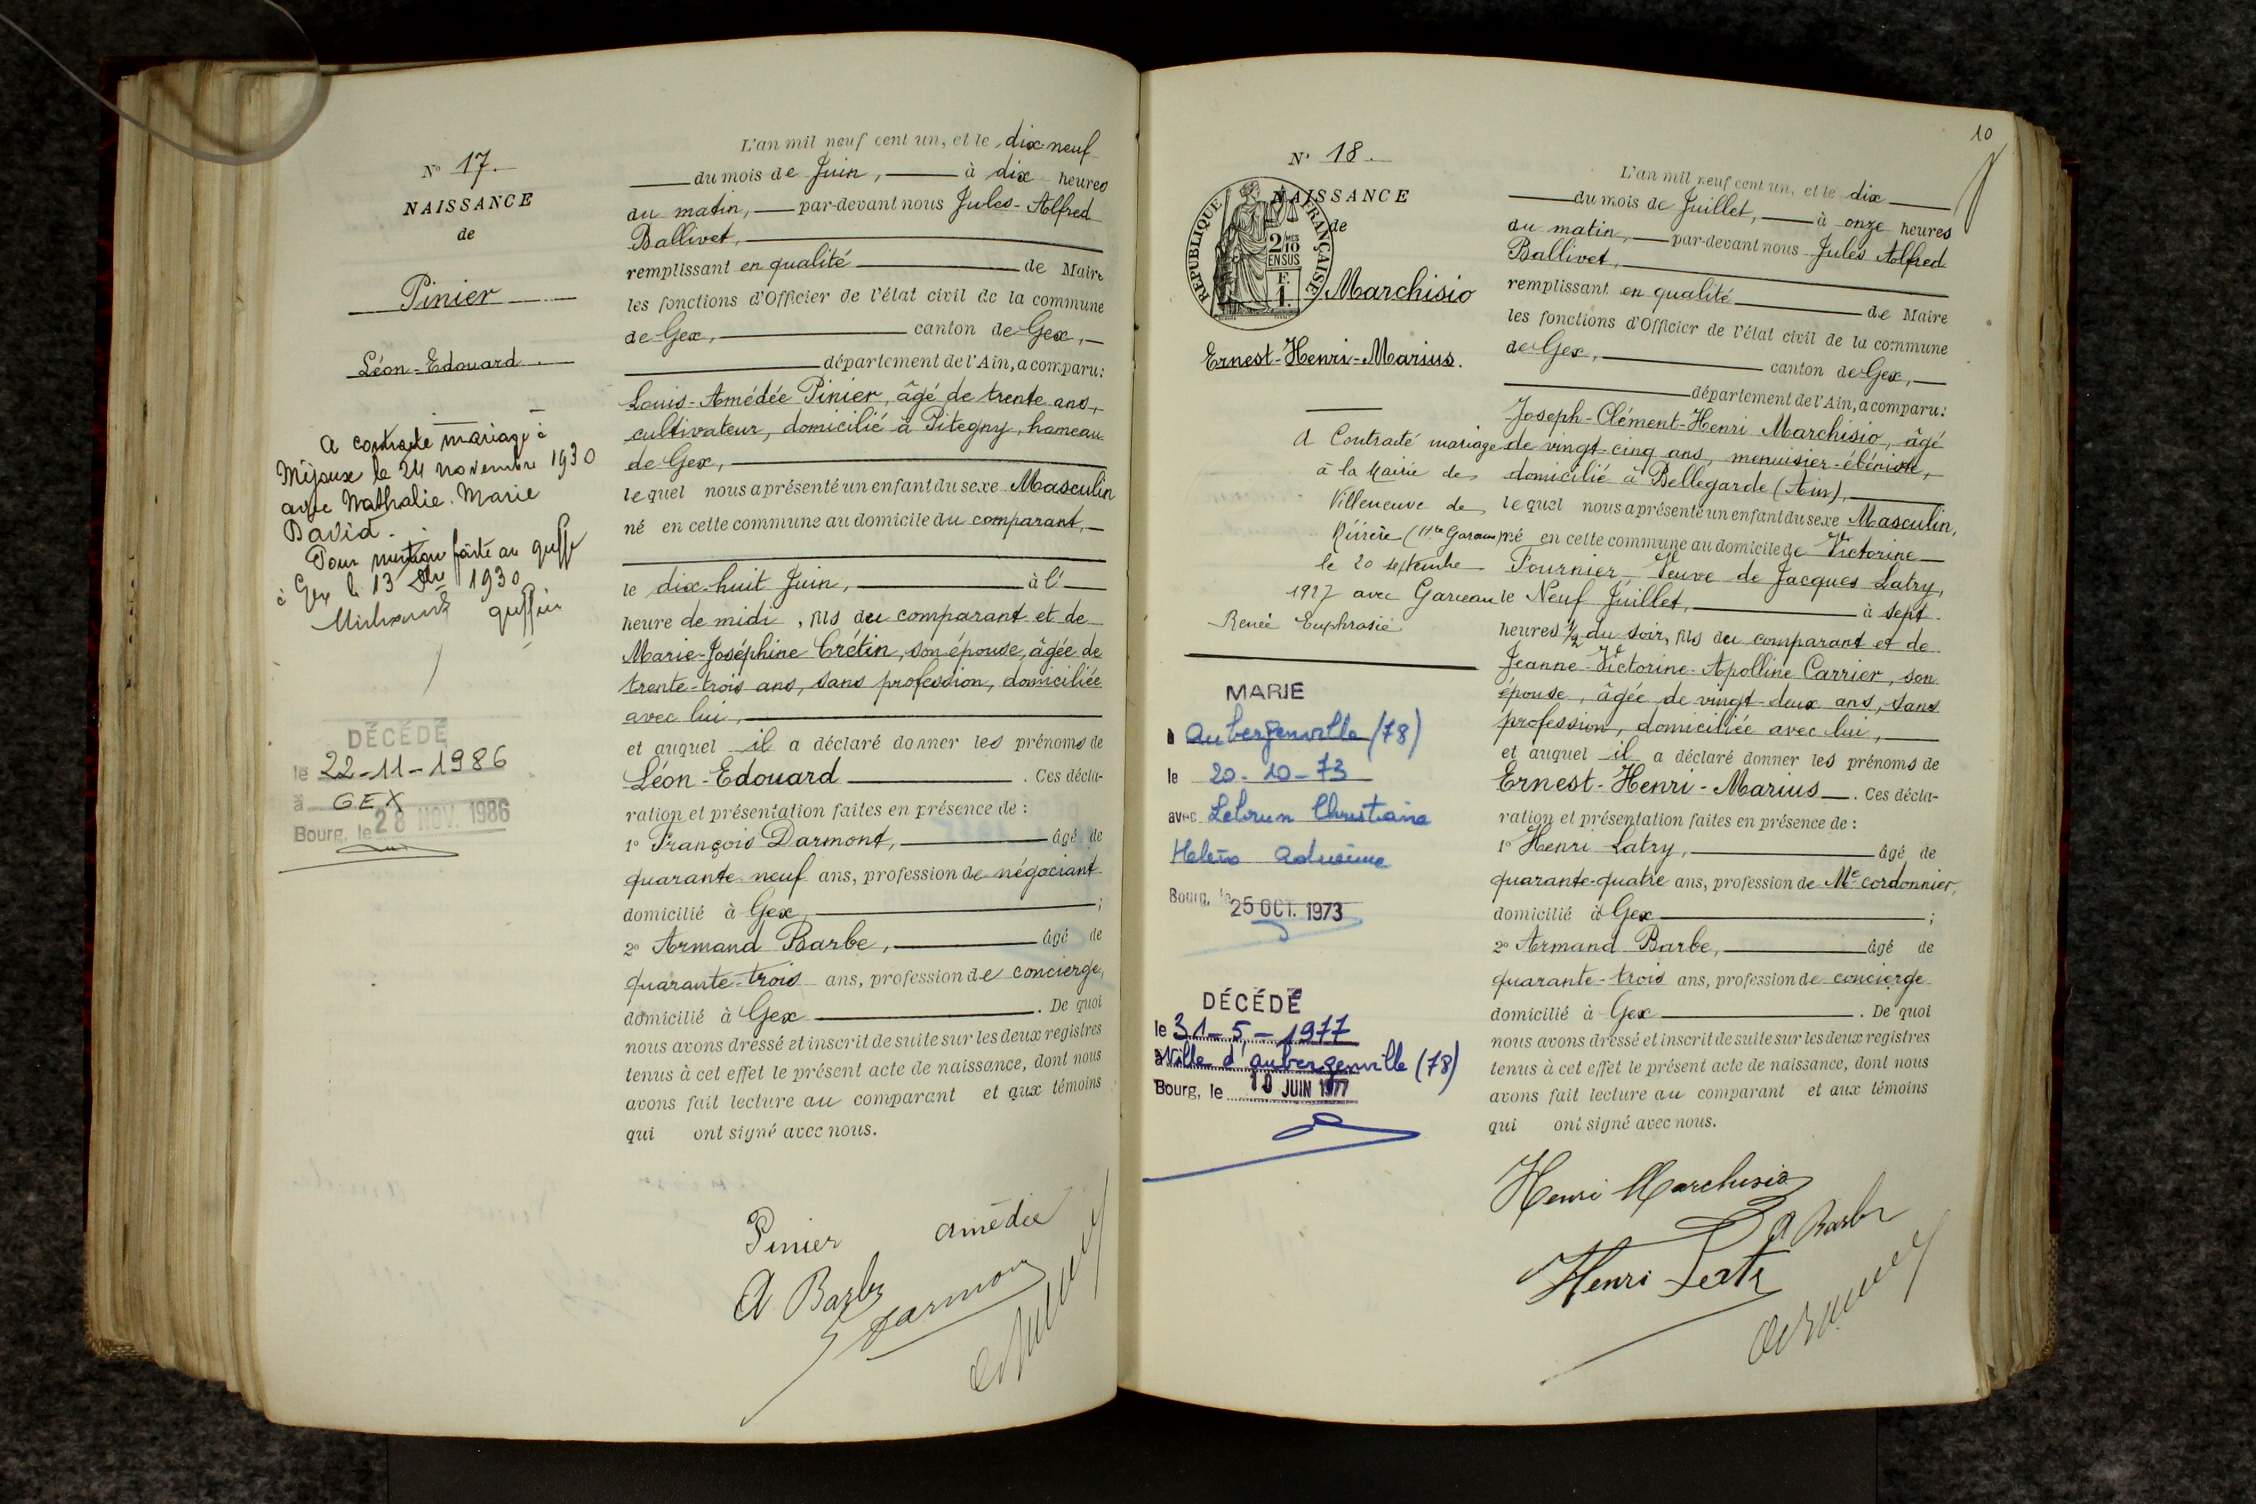 N° 17.
NAISSANCE
de
Pinier
Léon-Edouard.
A contracté mariage à
Mijoux le 24 novembre 1930
avec Nathalie. Marie
David.
Pour mention faite au greffe
à Gex le 13 1930
greffier
DÉCÉDÉ
le 22-11-1986
à GEX
Bourg, le 28 NOV. 1986
L'an mil neuf cent un, et le dix-neuf
du mois de Juin, à dix heures
du matin, par-devant nous Jules-Alfred
Ballivet,
remplissant en qualité de Maire
les fonctions d'Officier de l'état civil de la commune
de Gex, canton de Gex,
département de l'Ain, a comparu:
Louis-Amédée Pinier, âgé de trente ans,
cultivateur, domicilié à Pitegny, hameau
de Gex,
lequel nous a présenté un enfant du sexe Masculin
né en cette commune au domicile du comparant,
le dix-huit Juin, à l'
heure de midi, fils du comparant et de
Marie-Joséphine Crétin, son épouse, âgée de
trente-trois ans, sans profession, domiciliée
avec lui,
et auquel il a déclaré donner les prénoms de
Léon-Edouard. Ces décla-
ration et présentation faites en présence de :
1° François Darmont, âgé de
quarante neuf ans, profession de négociant
domicilié à Gex, ;
2° Armand Barbe, âgé de
quarante-trois ans, profession de concierge,
domicilié à Gex. De quoi
nous avons dressé et inscrit de suite sur les deux registres
tenus à cet effet le présent acte de naissance, dont nous
avons fait lecture au comparant et aux témoins
qui ont signé avec nous.
Pinier amédée
A Barbe
Darmont
10
N° 18.
NAISSANCE
de
RÉPUBLIQUE FRANÇAISE
2 MES
10
EN SUS
F.
1.
Marchisio
Ernest-Henri-Marius.
A Contracté mariage
à la Mairie de
Villeneuve de
Rivière (Hte Garonne)
le 20 septembre
1927 avec Garreau
Renée Euphrasie
MARIE
à Aubergenville (78)
le 20-10-73
avec Lebrun Christiane
Bourg, le 25 OCT. 1973
DÉCÉDÉ
le 31-5-1977
à Ville d'aubergenville (78)
Bourg, le 10 JUIN 1977
L'an mil neuf cent un, et le dix
du mois de Juillet, à onze heures
du matin, par-devant nous Jules Alfred
Ballivet,
remplissant en qualité de Maire
les fonctions d'Officier de l'état civil de la commune
de Gex, canton de Gex,
département de l'Ain, a comparu:
Joseph-Clément-Henri Marchisio, âgé
de vingt-cinq ans, menuisier-ébéniste,
domicilié à Bellegarde (Ain),
lequel nous a présenté un enfant du sexe Masculin,
né en cette commune au domicile de Victorine
Fournier, Veuve de Jacques Latry,
le Neuf Juillet, à sept
heures 1/2 du soir, fils du comparant et de
Jeanne-Victorine-Apolline Carrier, son
épouse, âgée de vingt-deux ans, sans
profession, domiciliée avec lui,
et auquel il a déclaré donner les prénoms de
Ernest-Henri-Marius. Ces décla-
ration et présentation faites en présence de :
1° Henri Latry, âgé de
quarante-quatre ans, profession de Me cordonnier,
domicilié à Gex ;
2° Armand Barbe, âgé de
quarante-trois ans, profession de concierge
domicilié à Gex. De quoi
nous avons dressé et inscrit de suite sur les deux registres
tenus à cet effet le présent acte de naissance, dont nous
avons fait lecture au comparant et aux témoins
qui ont signé avec nous.
Henri Marchisio
A Barbe
Henri